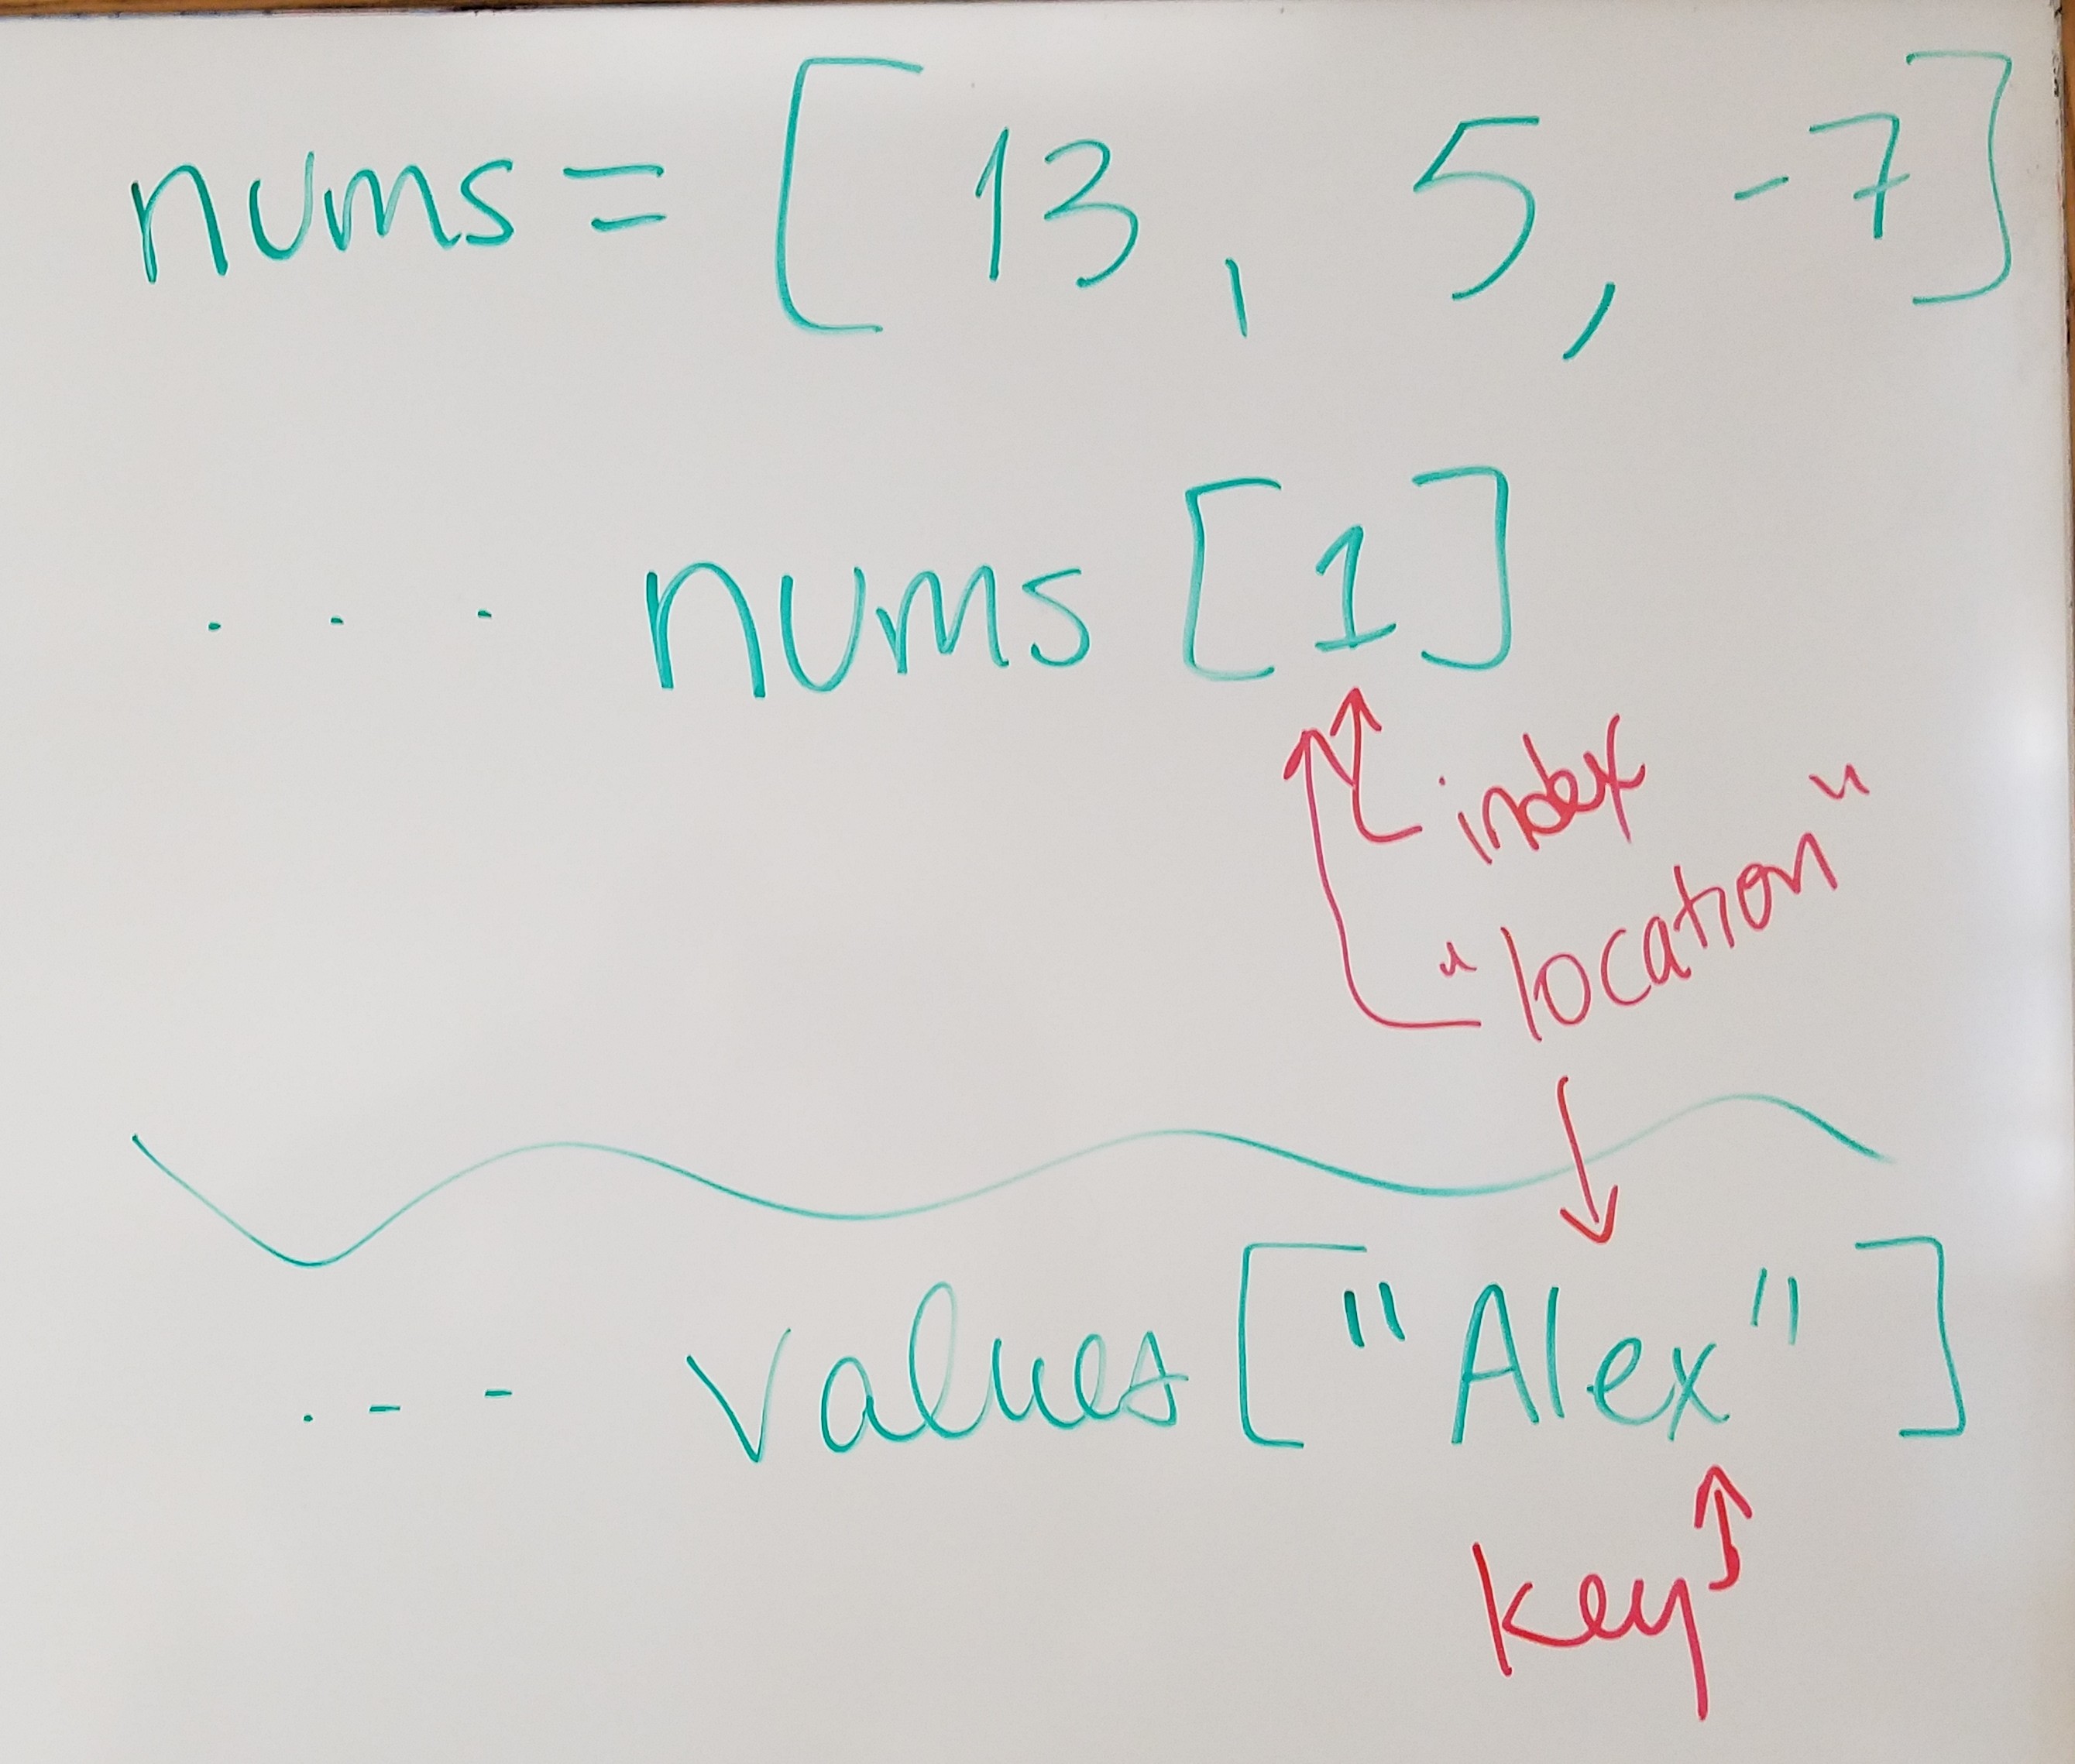 nums = [ 13, 5, -7]
. . . nums [1]
index
"location"
. - - values ["Alex"]
key